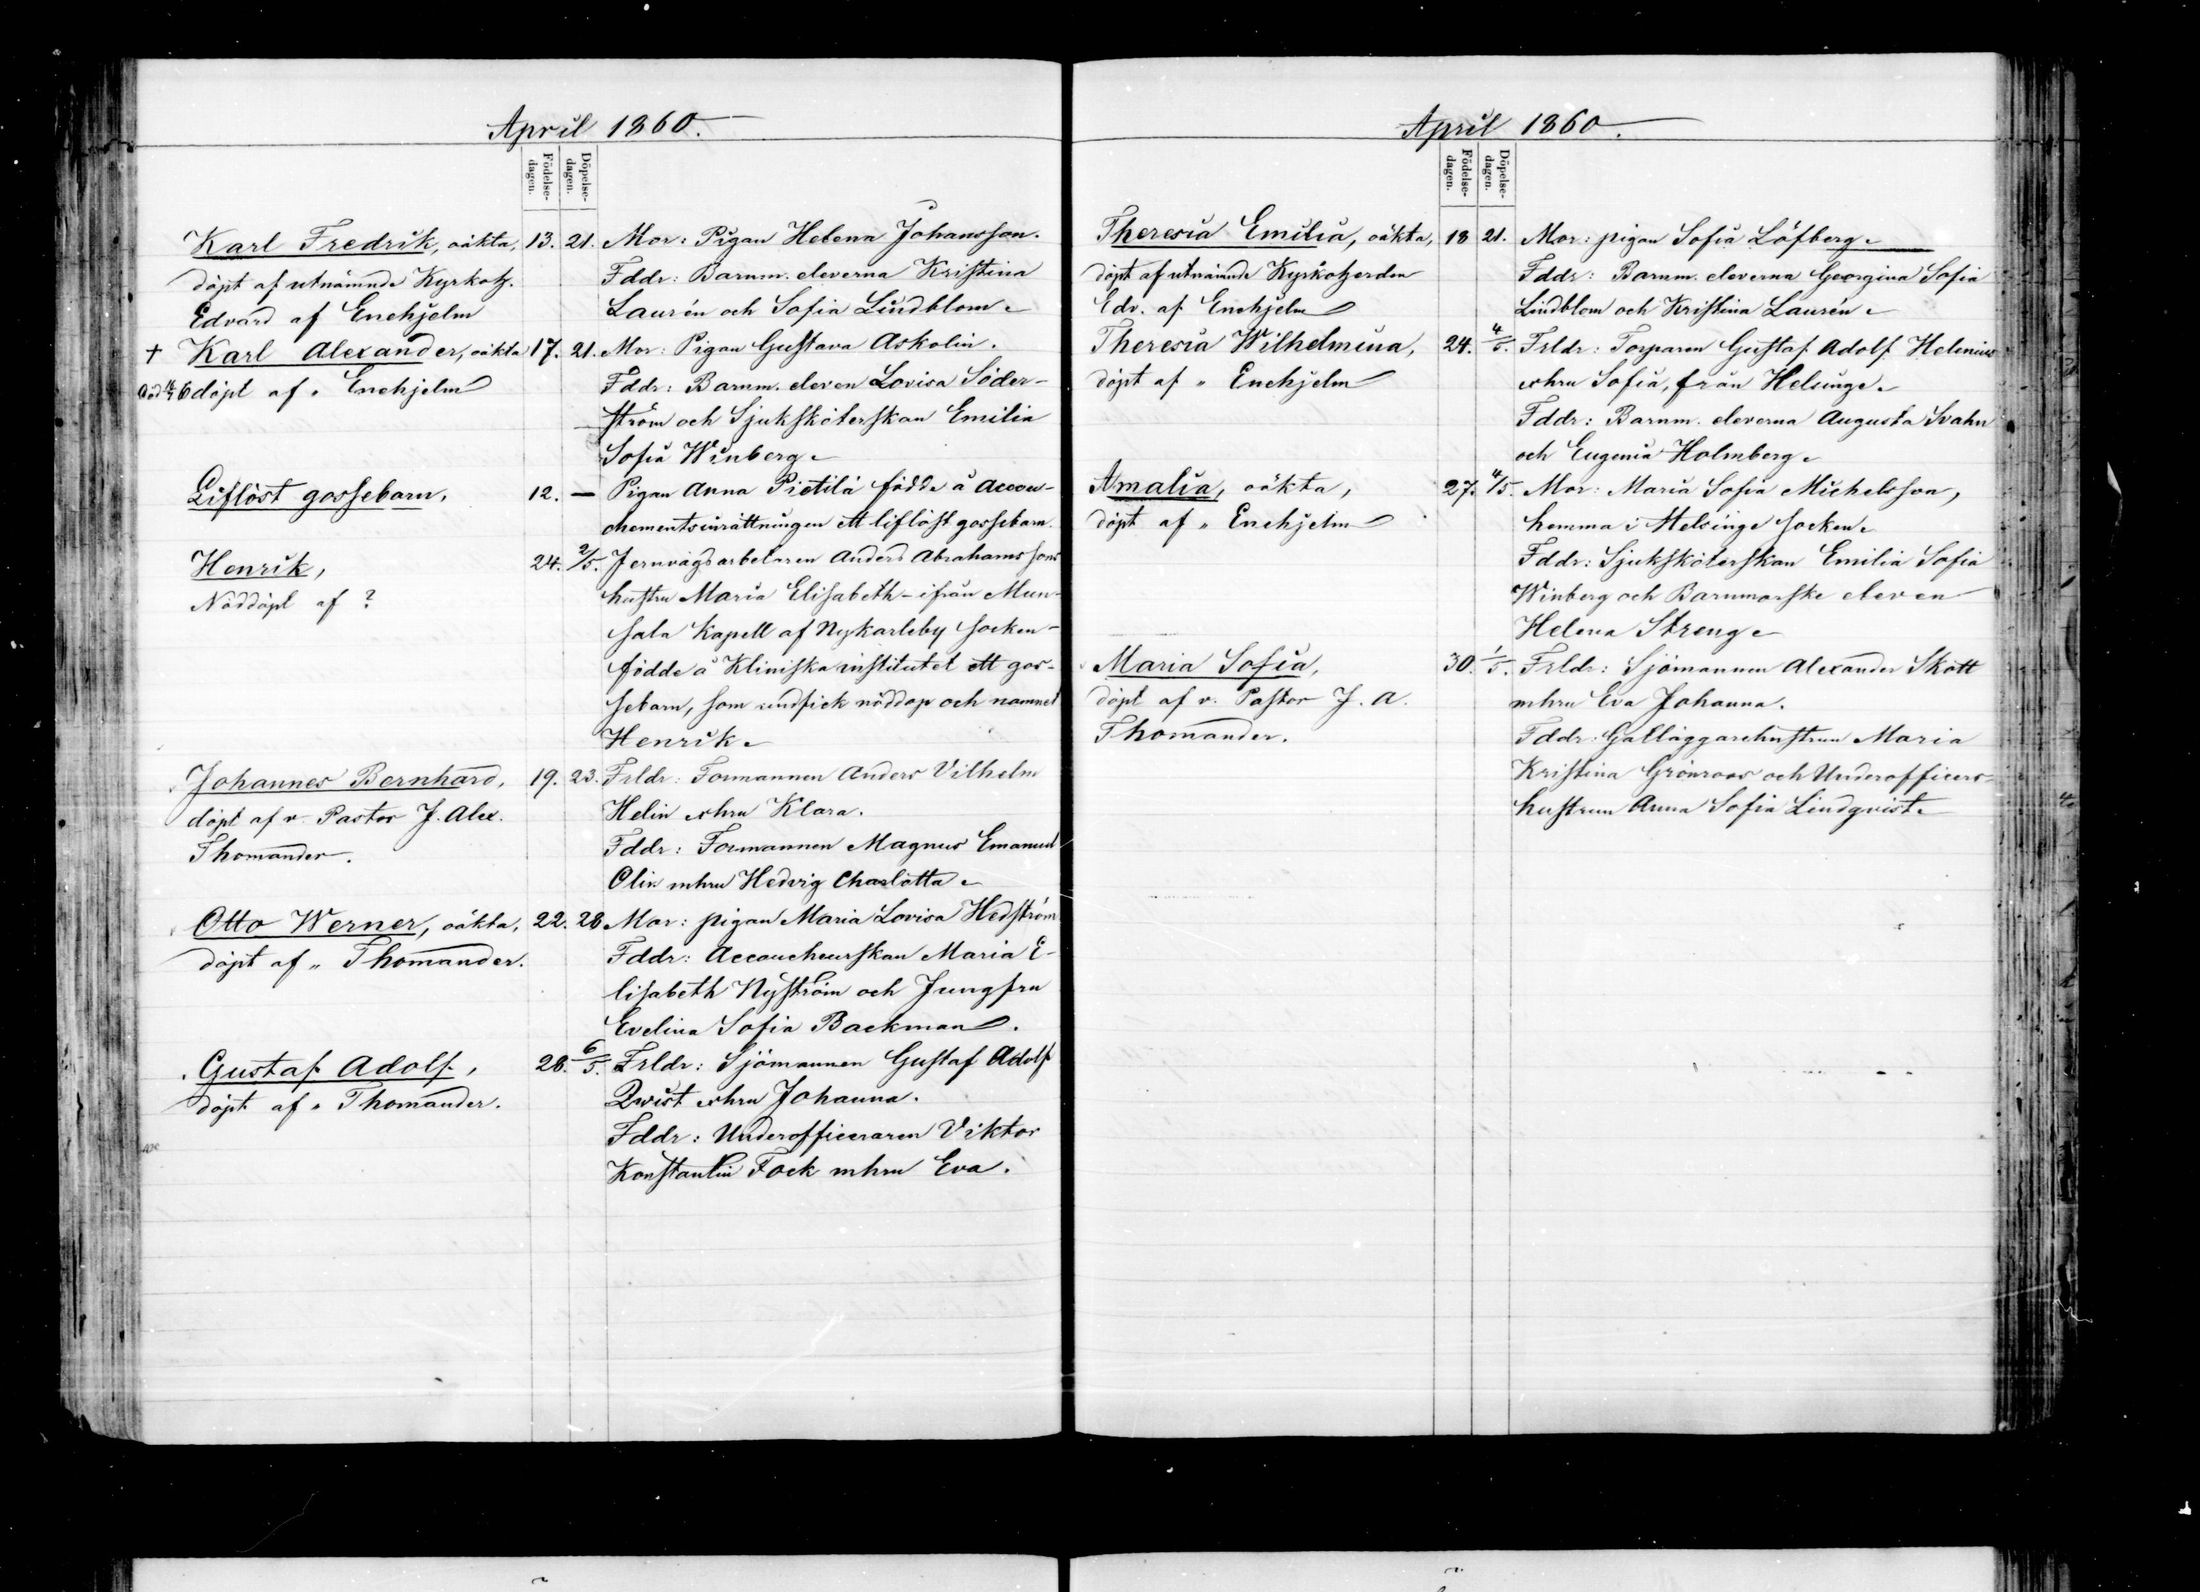 April 1860.
Födelse-
dagen.
Döpelse-
dagen.
Karl Fredrik, oäkta, 13. 21. Mor: Pigan Helena Johansson.
döpt af utnämnde Kyrkohz. Fddr: Barnm. eleverna Kristina
Edvard af Enehjelm Laurén och Sofia Lindblom
† Karl Alexander, oäkta 17. 21. Mor: Pigan Gustava Askolin.
döpt af „ Enehjelm Fddr: Barnm. eleven Lovisa Söder-
ström och Sjuksköterskan Emilia
Sofia Winberg
Liflöst gossebarn, 12. — Pigan Anna Pietilä födde å Accou-
chementsinrättningen ett liflöst gossebarn.
Henrik, 24. 2/5. Jernvägsarbetaren Anders Abrahamssons
Nöddöpt af ? hustru Maria Elisabeth - ifrån Mun-
sala Kapell af Nykarleby socken -
födde å Kliniska institutet ett gos-
sebarn, som undfick nöddop och namnet
Henrik
Johannes Bernhard, 19. 23. Frldr: Formannen Anders Vilhelm
döpt af v. Pastor J. Alex. Helin o hru Klara.
Thomander. Fddr: Formannen Magnus Emanuel
Olin mhru Hedvig Charlotta
Otto Werner, oäkta, 22. 28. Mor: pigan Maria Lovisa Hedström
döpt af „ Thomander. Fddr: Accoucheurskan Maria E-
lisabeth Nyström och Jungfru
Evelina Sofia Backman.
Gustaf Adolf, 28. 6/5. Frldr: Sjömannen Gustaf Adolf
döpt af „ Thomander. Qwist o hru Johanna.
Fddr: Underofficeraren Viktor
Konstantin Fock mhru Eva.
April 1860.
Födelse-
dagen.
Döpelse-
dagen.
Theresia Emilia, oäkta, 18 21. Mor: pigan Sofia Löfberg
döpt af utnämnde Kyrkoherden Fddr: Barnm. eleverna Georgina Sofia
Edv. af Enehjelm Lindblom och Kristina Laurén
Theresia Wilhelmina, 24. 4/5. Frldr: Torparen Gustaf Adolf Helenius
döpt af „ Enehjelm o hru Sofia, från Helsinge
Fddr: Barnm. eleverna Augusta Svahn
och Eugenia Holmberg
Amalia, oäkta, 27. 4/5. Mor: Maria Sofia Michelsson,
döpt af „ Enehjelm hemma i Helsinge socken
Fddr: Sjuksköterskan Emilia Sofia
Winberg och Barnmorske eleven
Helena Streng
Maria Sofia, 30. 1/5. Frldr: Sjömannen Alexander Skott
döpt af v. Pastor J. A. mhru Eva Johanna.
Thomander. Fddr: Gatläggarehustrun Maria
Kristina Grönroos och Underofficers-
hustrun Anna Sofia Lindqvist